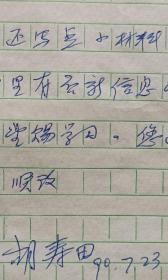 还写点小材料
里有否新信息
望赐学习。您
顺致
胡寿田 90.7.23